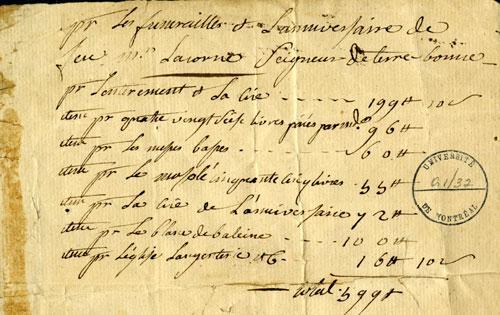 pr Les funerailles et L'anniversaire de
feu mr Lacorne Seigneur de terre bonne
pr Lenterement et La Cire - - - - - 199# 10s
item pr quatre vingt Seise livres païés par md. 96#
item pr Les messes basses - - - - - 60#
item pr le cinquante cinq livres. 55#
item pr La cire de L'anniversaire 72#
item pr Le blanc de baleine - - - - 100#
item pr L'églize Largenterie &c - - - 16# 10s
total. 599#
UNIVERSITÉ
G1/32
DE MONTRÉAL